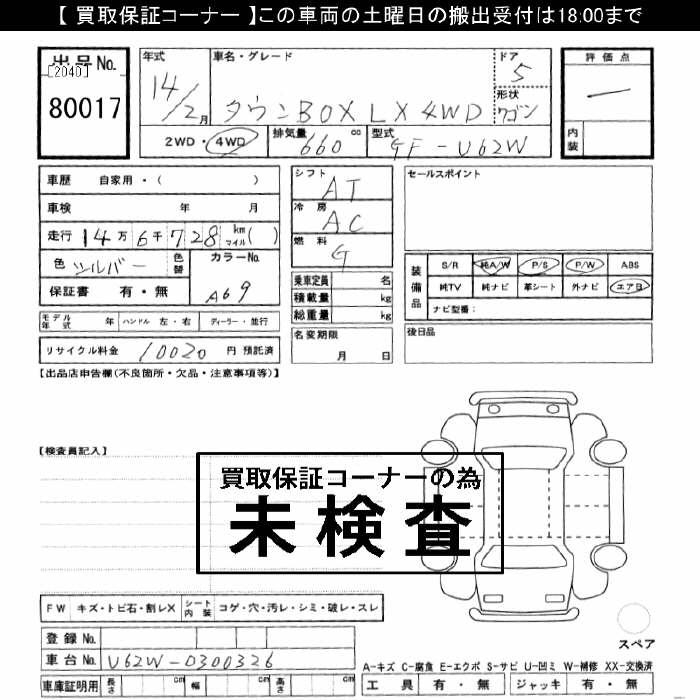 【 買取保証コーナー 】この車両の土曜日の搬出受付は18:00まで
出品No. [2040] 80017
年式 14/2月
車名・グレード タウンBOX LX 4WD
ドア 5
形状 ワゴン
2WD・4WD
排気量 660 cc
型式 GF-U62W
評価点 —
内装
車歴 自家用・( )
車検 年 月
走行 14万6千728 km マイル( )
色 シルバー 色替
カラーNo. A69
保証書 有・無
モデル年式 年 ハンドル 左・右 ディーラー・並行
リサイクル料金 10020 円 預託済
シフト AT
冷房 AC
燃料 G
乗車定員 名
積載量 kg
総重量 kg
名変期限 月 日
セールスポイント
装備品 S/R 純A/W P/S P/W ABS
純TV 純ナビ 革シート 外ナビ エアB
ナビ型番:
後日品
【出品店申告欄(不良箇所・欠品・注意事項等)】
【検査員記入】
買取保証コーナーの為
未検査
FW キズ・トビ石・割レX シート内装 コゲ・穴・汚レ・シミ・破レ・スレ
スペア
登録No.
車台No. U62W-0300326
車庫証明用 長さ cm 幅 cm 高さ cm
A-キズ C-腐食 E-エクボ S-サビ U-凹ミ W-補修 XX-交換済
工具 有・無 ジャッキ 有・無